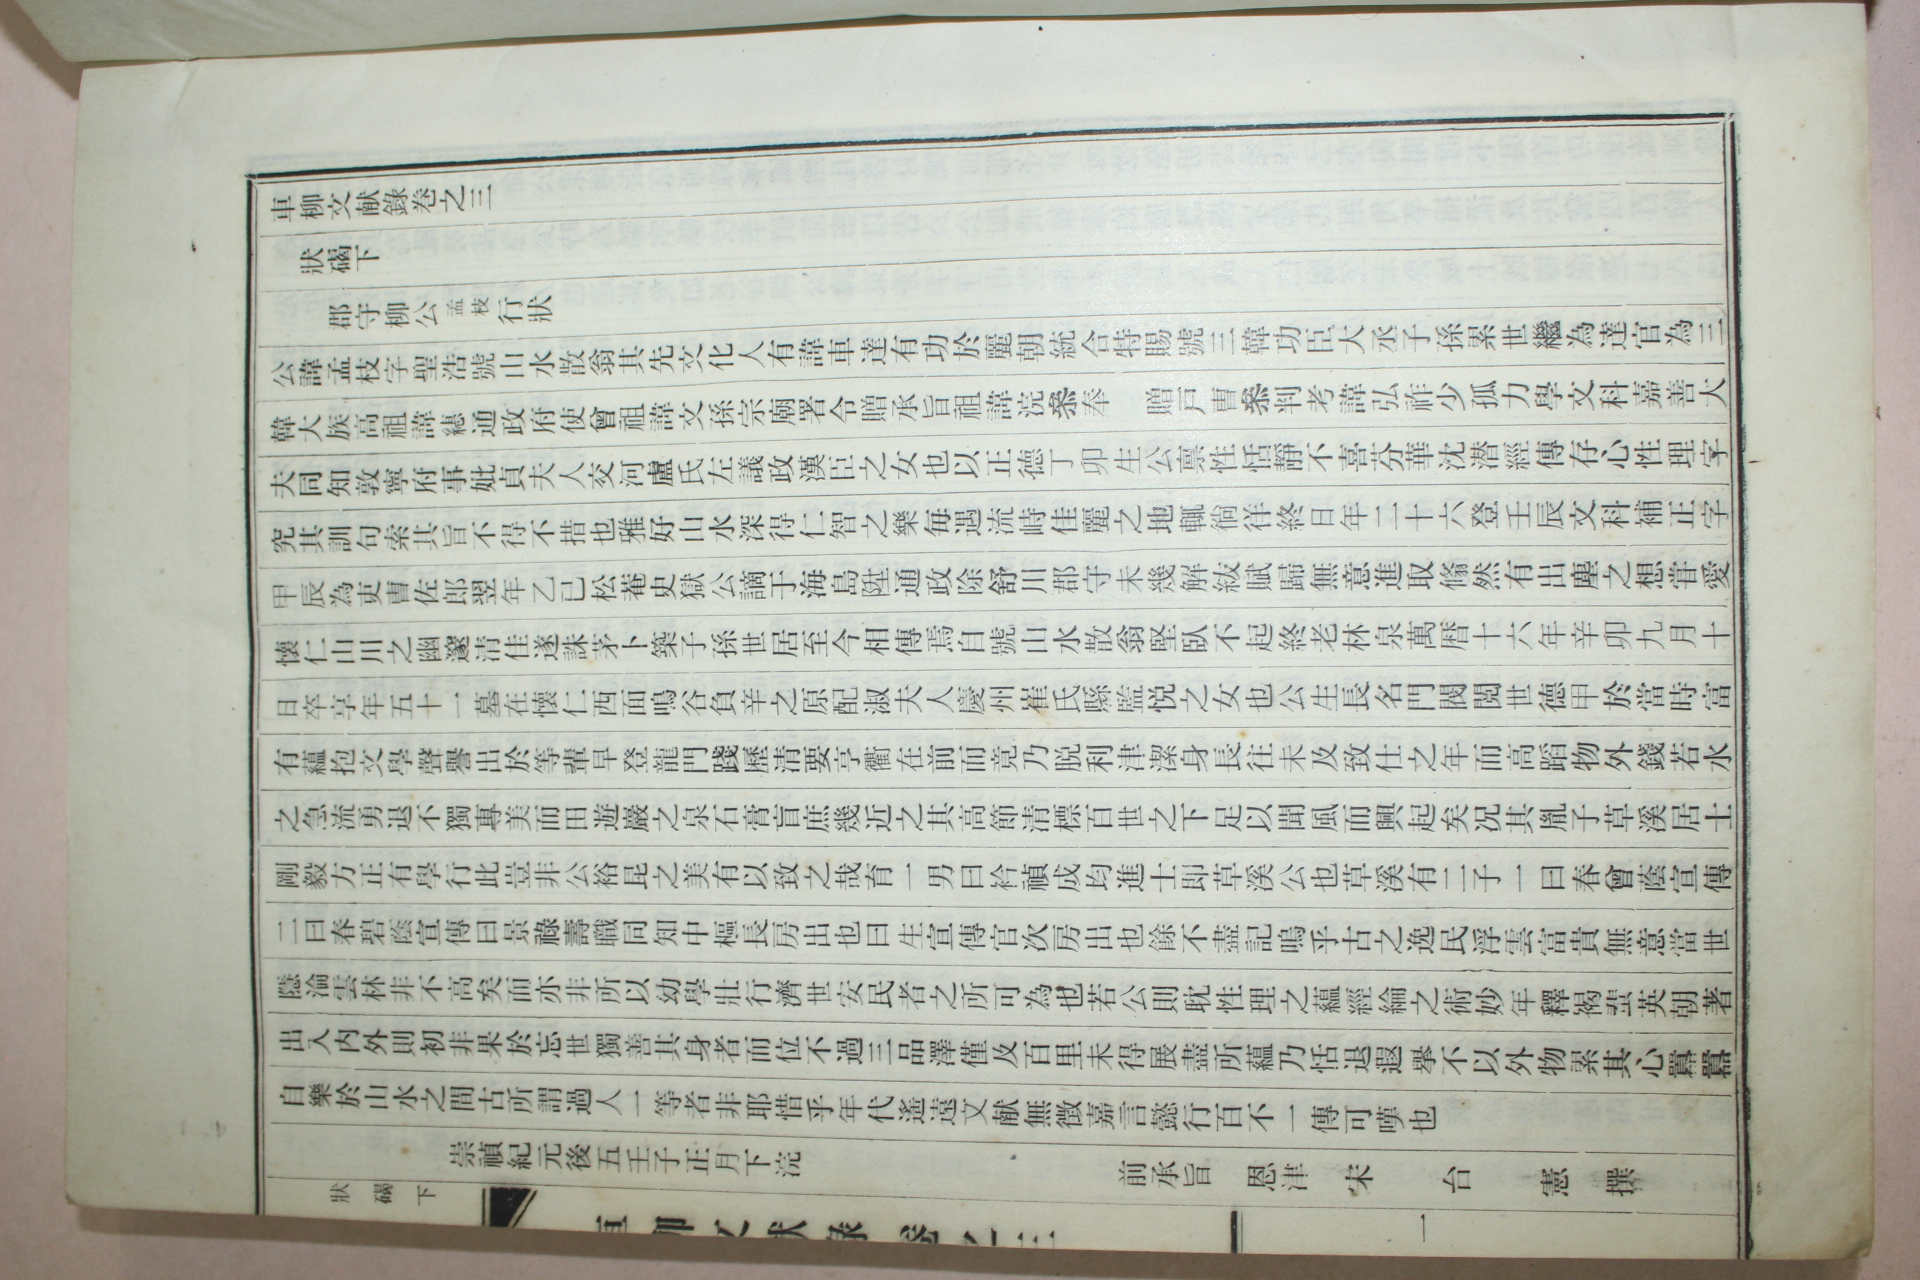 車柳文献錄卷之三
狀碣下
郡守柳公孟枝行狀
公諱孟枝字聖浩號山水散翁其先文化人有諱車達有功於麗朝統合特賜號三韓功臣大丞子孫累世繼為達官為三
韓大族高祖諱繐通政府使曾祖諱文孫宗廟署令贈承旨祖諱浣叅奉 贈戶曹叅判考諱弘祚少孤力學文科嘉善大
夫同知敦寧府事妣貞夫人交河盧氏左議政漢臣之女也以正德丁卯生公禀性恬靜不喜芬華沈潜經傳存心性理字
究其訓句索其旨不得不措也雅好山水深得仁智之樂每遇流峙佳麗之地輒徜徉終日年二十六登壬辰文科補正字
甲辰為吏曹佐郎翌年乙巳松菴史獄公謫于海島陞通政除舒川郡守未幾解紱賦歸無意進取翛然有出塵之想甞愛
懷仁山川之幽邃清佳遂誅茅卜築子孫世居至今相傳焉自號山水散翁堅臥不起終老林泉萬曆十六年辛卯九月十
日卒享年五十一墓在懷仁西面鳴谷負辛之原配淑夫人慶州崔氏縣監悅之女也公生長名門閥閱世德甲於當時富
有蘊抱文學聲譽出於等輩早登龍門踐歷清要亨衢在前而竟乃脫利津潔身長往未及致仕之年而高蹈物外錢若水
之急流勇退不獨專美而田遊巖之泉石膏盲庶幾近之其高節清標百世之下足以聞風而興起矣况其胤子草溪居士
剛毅方正有學行此豈非公裕昆之美有以致之哉育一男曰衿禎成均進士即草溪公也草溪有二子一曰春曾蔭宣傳
二曰春碧蔭宣傳曰景祿壽職同知中樞長房出也曰生宣傳官次房出也餘不盡記嗚乎古之逸民浮雲富貴無意當世
隱淪雲林非不高矣而亦非所以幼學壯行濟世安民者之所可為也若公則耽性理之蘊經綸之術妙年釋褐蜚英朝著
出入內外則初非果於忘世獨善其身者而位不過三品澤僅及百里未得展盡所蘊乃恬退遐擧不以外物累其心囂囂
自樂於山水之間古所謂過人一等者非耶惜乎年代遙遠文献無徵嘉言懿行百不一傳可嘆也
崇禎紀元後五壬子正月下浣 前承旨 恩津 宋 台 憲 撰
狀碣下
車柳文献錄卷之三
一